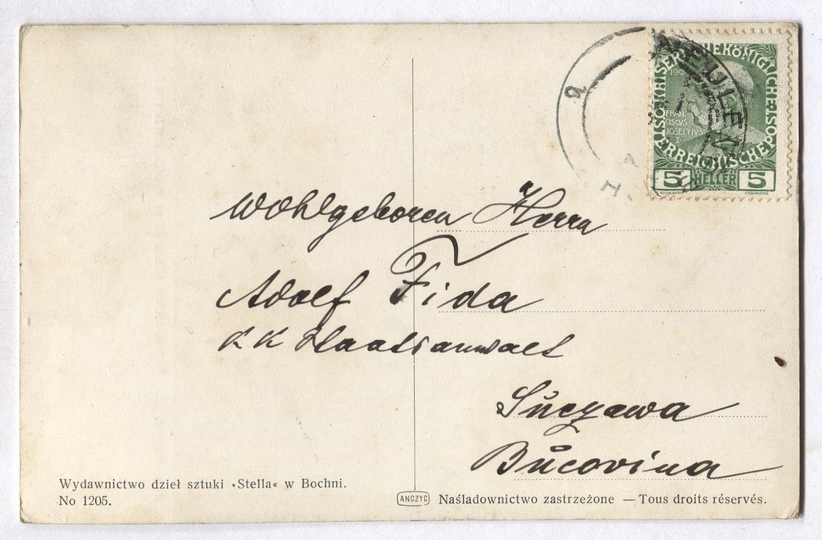 KAISERLICHE KÖNIGLICHE ÖSTERREICHISCHE POST
FRAN
CISCUS
JOSEPHVS I
5 HELLER 5
Wohlgeboren Herrn
Adolf Fida
K K Staatsanwalt
Suczawa
Bucovina
Wydawnictwo dzieł sztuki „Stella“ w Bochni.
No 1205.
ANCZYC Naśladownictwo zastrzeżone — Tous droits réservés.